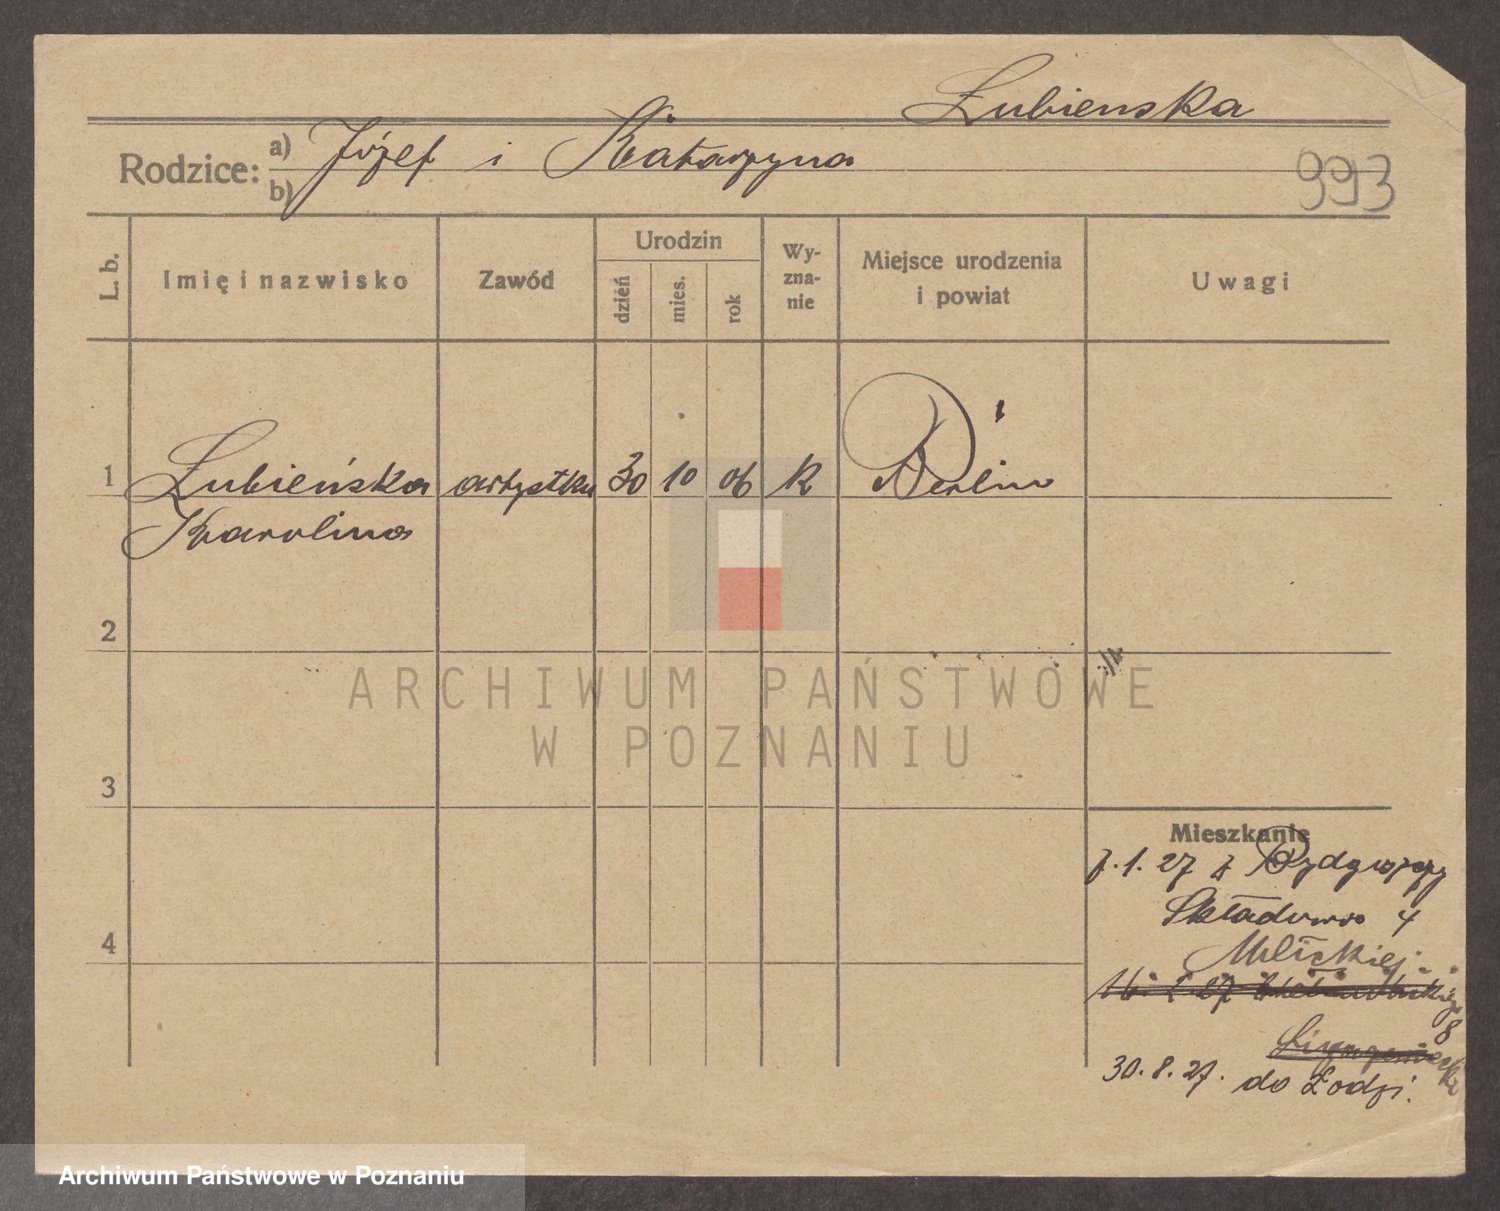 Łubienska
Rodzice: a) Józef i Katarzyna
b)
993
L. b.
Imię i nazwisko
Zawód
Urodzin
dzień
mies.
rok
Wy-
zna-
nie
Miejsce urodzenia
i powiat
Uwagi
1 Łubieńska artystka 30 10 06 k Berlin
Karolina
2
3
4
ARCHIWUM PAŃSTWOWE
W POZNANIU
Mieszkanie
7.1.27 z Bydgoszczy
Składowa 4
16. 27
8
30.8.27. do Łodzi.
Archiwum Państwowe w Poznaniu